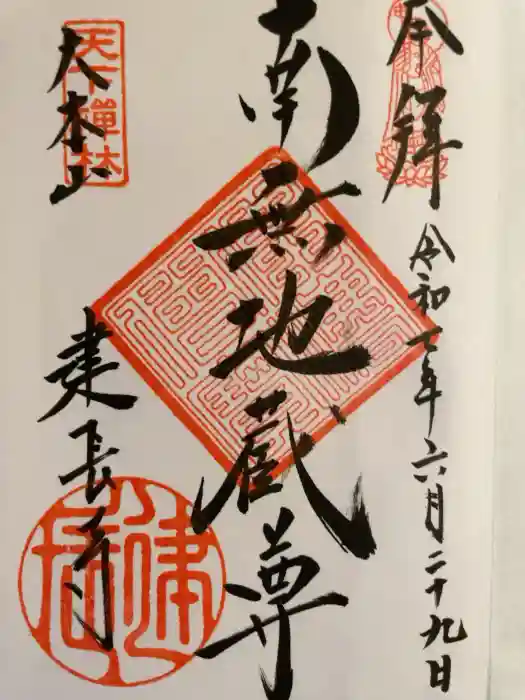 奉拝
令和七年六月二十九日
南無地蔵尊
天下禅林
大本山
建長寺
建長